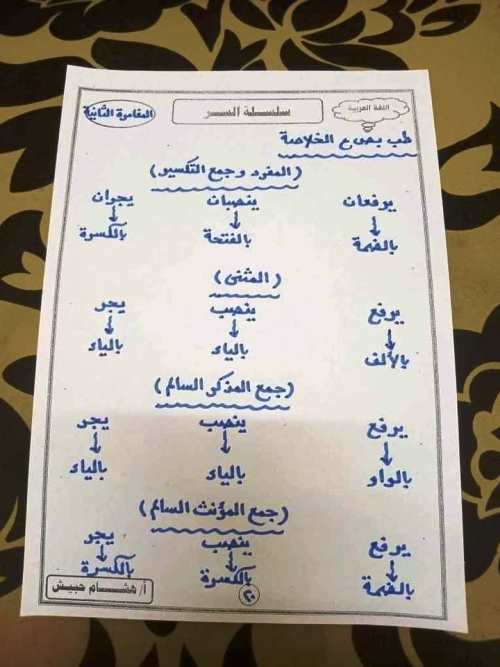 اللغة العربية
سلسلة السر
المغامرة الثانية
طب بص ع الخلاصة
(المفرد وجمع التكسير)
يرفعان ينصبان يجران
↓ ↓ ↓
بالضمة بالفتحة بالكسرة
(المثنى)
يرفع ينصب يجر
↓ ↓ ↓
بالألف بالياء بالياء
(جمع المذكر السالم)
يرفع ينصب يجر
↓ ↓ ↓
بالواو بالياء بالياء
(جمع المؤنث السالم)
يرفع ينصب يجر
↓ ↓ ↓
بالضمة بالكسرة بالكسرة
٢٠
أ/ هشام حبيش